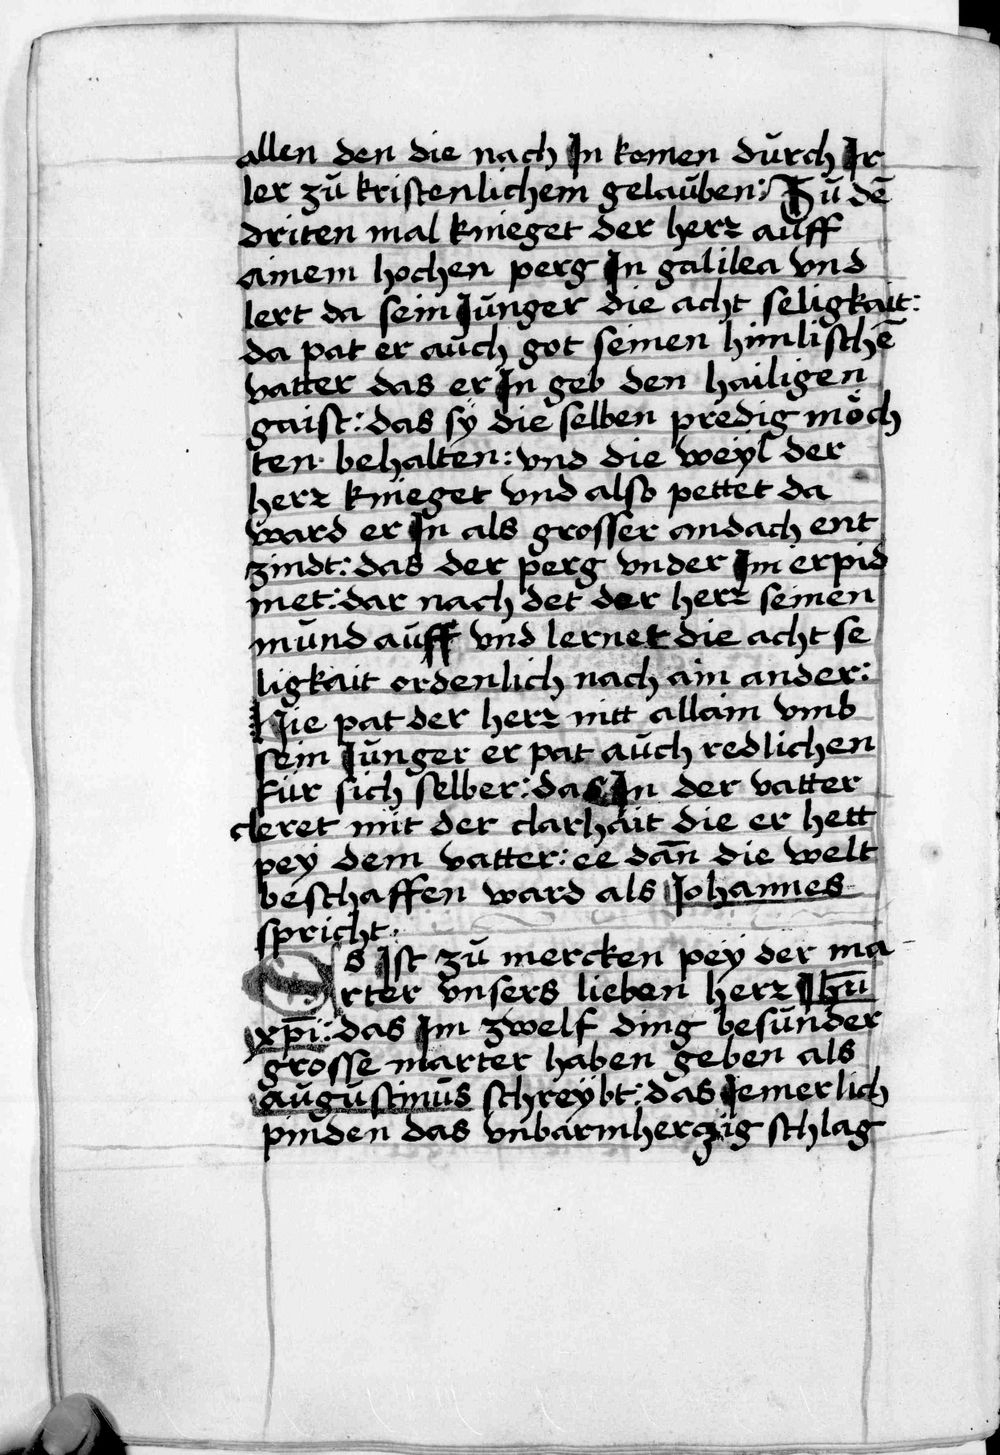 allen den die nach In komen durch Ir
ler zů kristenlichem gelauben: Zů dē
driten mal knieget der herz auff
ainem hochen perg In galilea vnd
lert da sein Junger die acht seligkait:
da pat er auch got seinen himlischē
vatter das er In geb den hailigen
gaist: das sÿ die selben predig möch
ten behalten: vnd die weÿl der
herz knieget vnd also pettet da
ward er In als grosser andach ent
zindt: das der perg vnder Im erpid
met: dar nach det der herz seinen
mund auff vnd lernet die acht se
ligkait ordenlich nach ain ander:
Nie pat der herz nitt allain vmb
sein Junger er pat auch redlichen
für sich selber: das In der vatter
cleret mit der clarhait die er hett
peÿ dem vatter: ee dan̄ die welt
beschaffen ward als Johannes
spricht.
Es Ist zů mercken peÿ der ma
rter vnsers lieben herz Ihū
xpī: das Im zwelf ding besunder
grosse marter haben geben als
augustinus schreÿbt: das Iemerlich
pinden das vnbarmherczig schlag